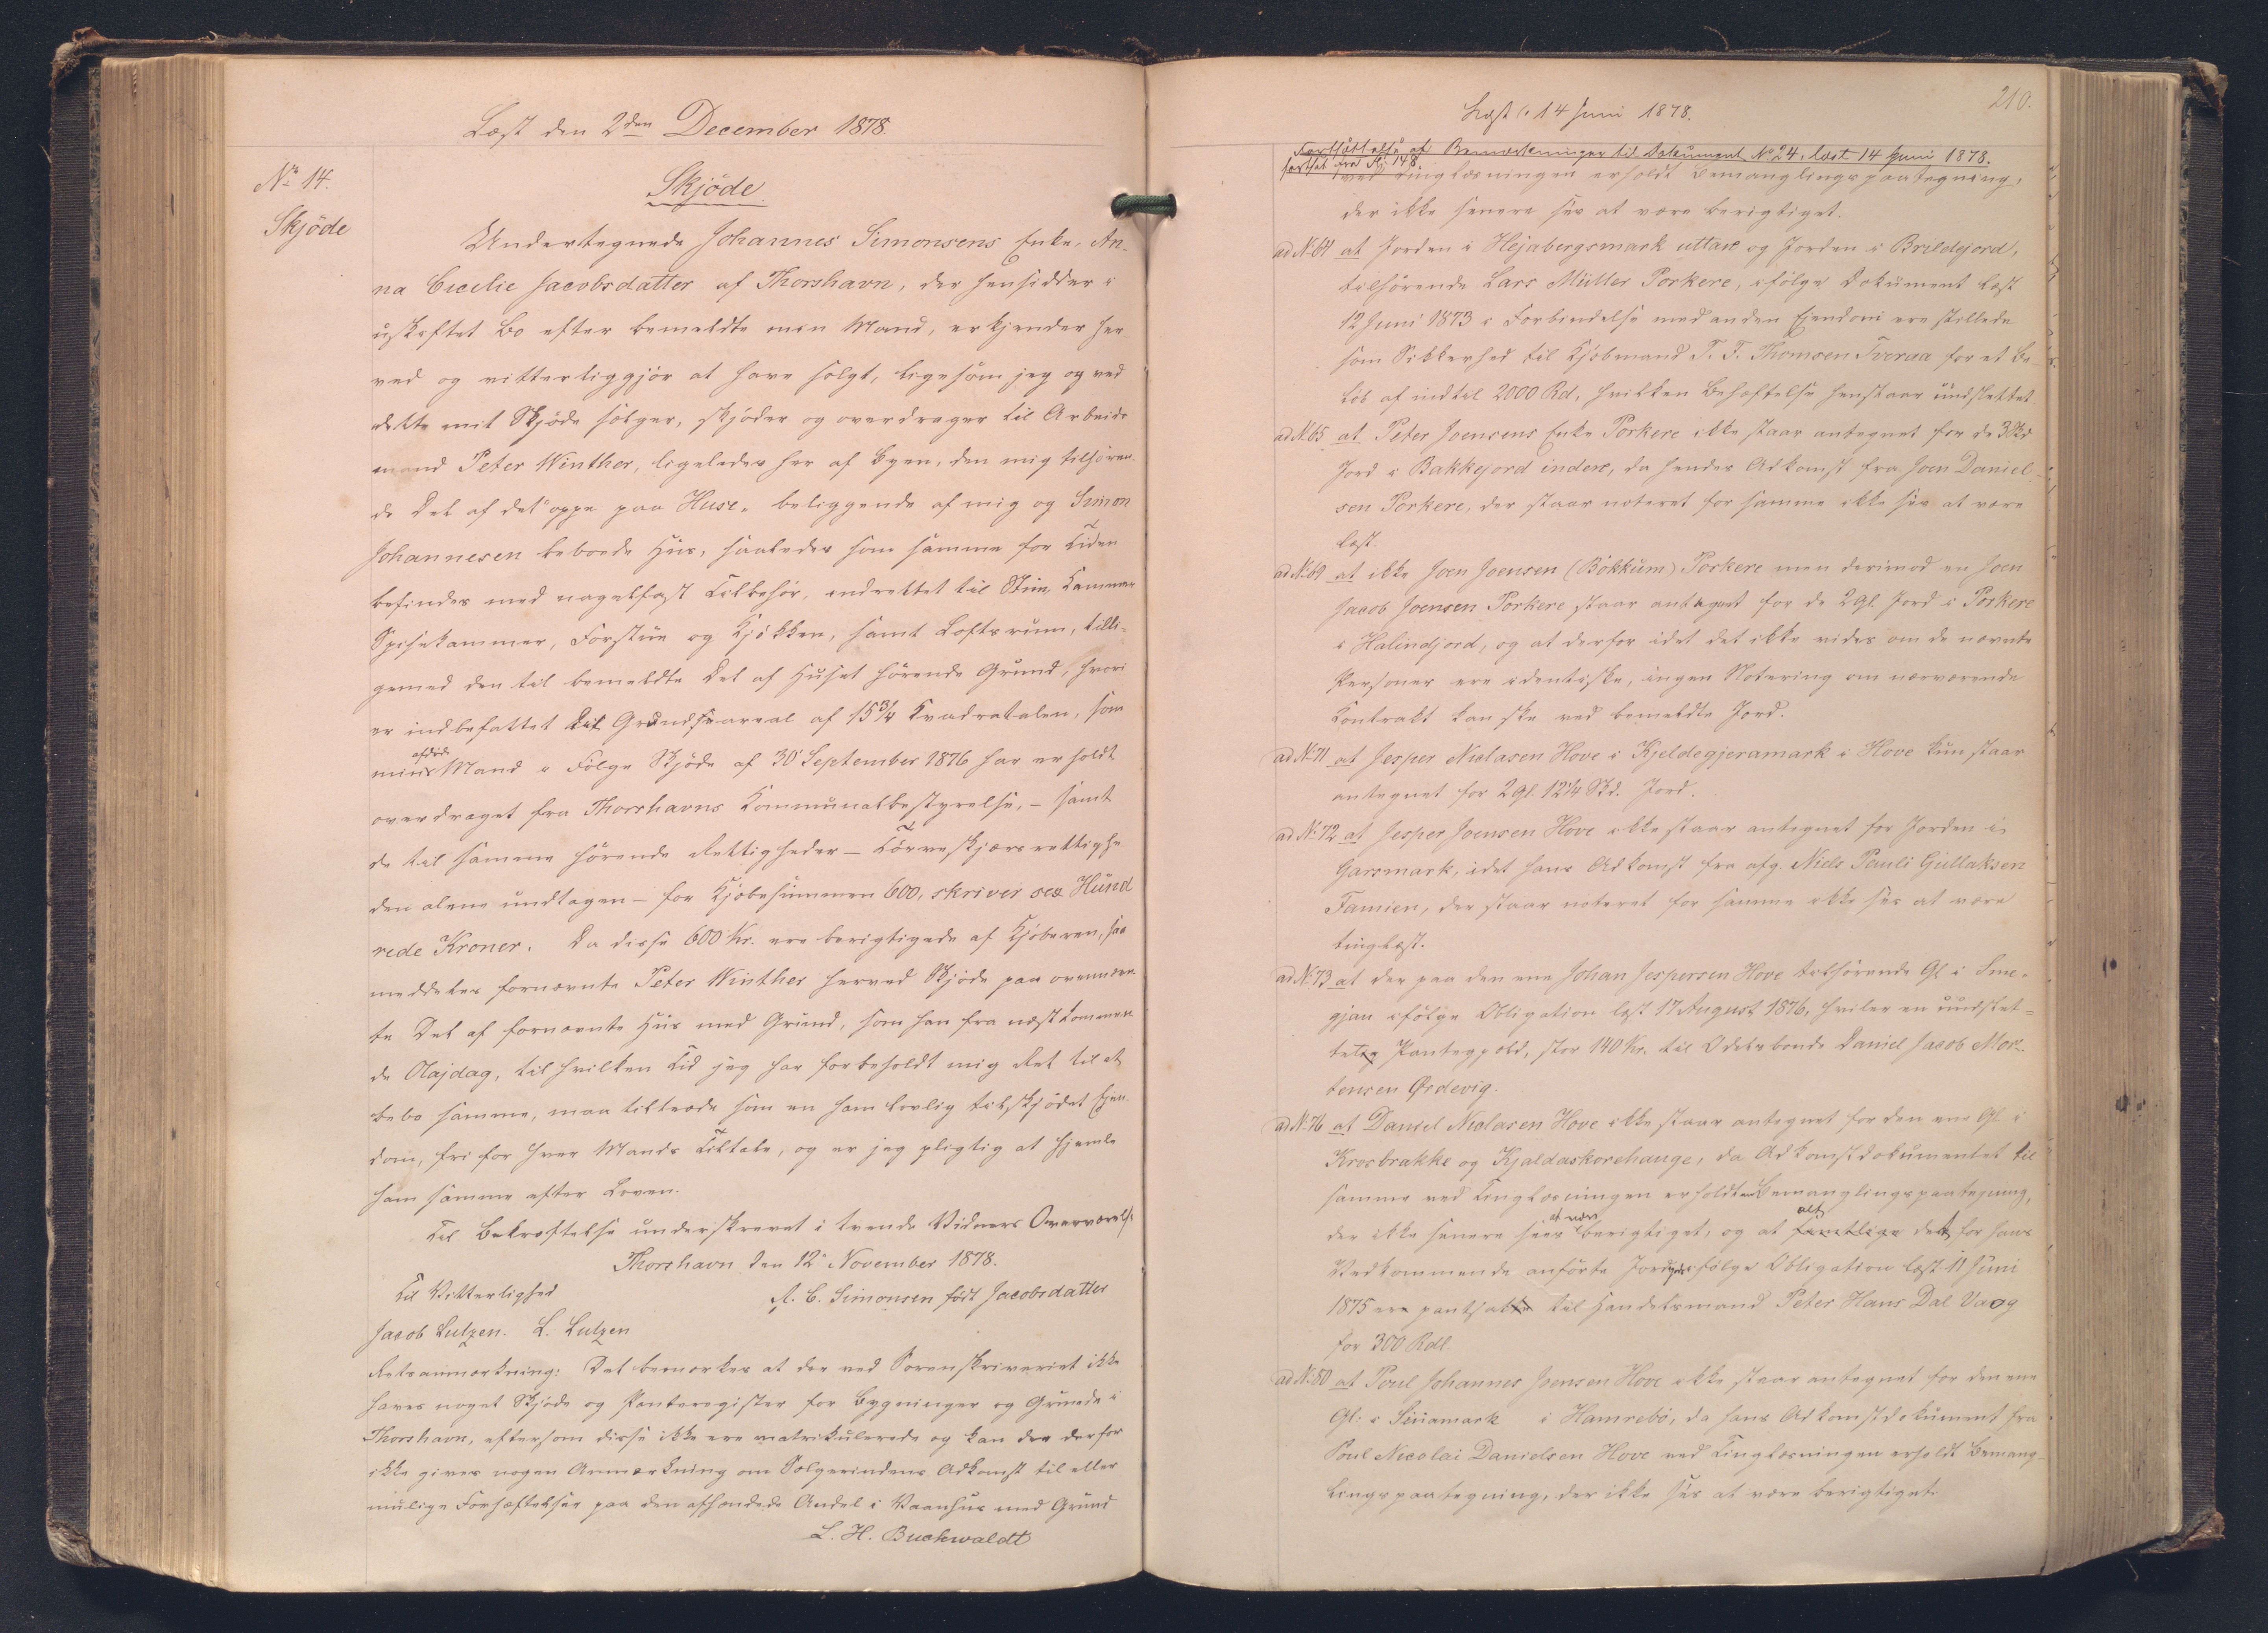 Læst den 2den December 1878.
No 14.
Skjöde
Skjöde.
Undertegnede Johannes Simonsens Enke, An-
na Cecilie Jacobsdatter af Thorshavn, der hensidder i
uskiftet Bo efter bemeldte min Mand, erkjender her-
ved og vitterliggjör at have solgt, ligesom jeg og ved
dette mit Skjöde sælger, skjöder og overdrager til Arbeids-
mand Peter Winther, ligeledes her af Byen, den mig tilhören-
de Del af det "oppe paa Huse" beliggende af mig og Simon
Johannesen beboede Hus, saaledes som samme for Tiden
befindes med nagelfast Tilbehör, indrettet til Stue, Kammer
Spisekammer, Forstue og Kjökken, samt Loftsrum, tilli-
gemed den til bemeldte Del af Huset hörende Grund, hvori
er indbefattet det Grundfareal af 15¾ Kvadratalen, som
min afdöde Mand i Fölge Skjöde af 30 September 1876 har erholdt
overdraget fra Thorshavns Kommunalbestyrelse, – samt
de til samme hörende Rettigheder – Törveskjærsrettighe-
den alene undtagen – for Kjöbesummen 600, skriver sex Hund
rede Kroner. Da disse 600 Kr. ere berigtigede af Kjöberen, saa
meddeles fornævnte Peter Winther herved Skjöde paa ovennævn
te Del af fornævnte Hus med Grund, som han fra næstkommen
de Majdag, til hvilken Tid jeg har forbeholdt mig Ret til at
bebo samme, maa tiltræde som en ham lovlig tilskjödet Ejen-
dom, fri for hver Mands Tiltale, og er jeg pligtig at hjemle
ham samme efter Loven.
Til Bekræftelse underskrevet i tvende Vidners Overværelse
Thorshavn den 12 November 1878.
Til Vitterlighed A. C. Simonsen födt Jacobsdatter
Jacob Lutzen. L. Lutzen
Retsanmærkning: Det bemærkes at der ved Sorenskriveriet ikke
haves noget Skjöde og Panteregister for Bygninger og Grunde i
Thorshavn, eftersom disse ikke ere matrikulerede og kan der derfor
ikke gives nogen Anmærkning om Sælgerindens Adkomst til eller
mulige Forhæftelser paa den afhændede Andel i Vaanhus med Grund
L. H. Buchwaldt
210.
Læst d. 14 Juni 1878.
Fortsættelse af Bemærkninger til Dokument No 24, læst 14 Juni 1878.
fortsat fra Sj. 148.
ved Tinglæsningen erholdt Bemanglingspaategning,
der ikke senere ses at være berigtiget.
ad No 64 at Jorden i Hejabergsmark uttare og Jorden i Brildejord,
tilhörende Lars Müller Porkere, ifölge Dokument læst
12 Juni 1873 i Forbindelse med anden Ejendom ere stillede
som Sikkerhed til Kjöbmand T. F. Thomsen Tveraa for et Be-
löb af indtil 2000 Rd, hvilken Behæftelse henstaar uudslettet.
ad No 65 at Peter Joensens Enke Porkere ikke staar antegnet for de 3 Skd
Jord i Bakkejord indere, da hendes Adkomst fra Joen Daniel-
sen Porkere, der staar noteret for samme ikke ses at være
læst.
ad No 69 at ikke Joen Joensen (Bökkum) Porkere men derimod en Joen
Jacob Joensen Porkere staar antegnet for de 2 Gl. Jord i Porkere
i Halindjord, og at derfor idet det ikke vides om de nævnte
Personer ere identiske, ingen Notering om nærværende
Kontrakt kan ske ved bemeldte Jord.
ad No 71 at Jesper Niclasen Hove i Kjeldegjeramark i Hove kun staar
antegnet for 2 Gl. 12¼ Skd. Jord.
ad No 72 at Jesper Joensen Hove ikke staar antegnet for Jorden i
Garsmark, idet hans Adkomst fra afg. Niels Pauli Gullaksen
Famien, der staar noteret for samme ikke ses at være
tinglæst.
ad No 73 at der paa den ene Johan Jespersen Hove tilhörende Gl i Sme-
gjan ifölge Obligation læst 17 August 1876, hviler en uudslet-
tet Pantegjæld, stor 140 Kr. til Odelsbonde Daniel Jacob Mor-
tensen Ördevig.
ad No 76 at Daniel Niclasen Hove ikke staar antegnet for den ene Gl i
Krosbrakke og Kjaldaskorehauge, da Adkomstdokumentet til
samme ved Tinglæsningen erholdt en Bemanglingspaategning,
der ikke senere sees at være berigtiget, og at samtlige alt det for hans
Vedkommende anförte Jord ifölge Obligation læst 11 Juni
1875 er pantsat til Handelsmand Peter Hans Dal Vaag
for 300 Rdl.
ad No 80 at Poul Johannes Joensen Hove ikke staar antegnet for den ene
Gl. i Siinamark i Hamrebö, da hans Adkomstdokument fra
Poul Nicolai Danielsen Hove ved Tinglæsningen erholdt Bemang-
lingspaategning, der ikke ses at være berigtiget.